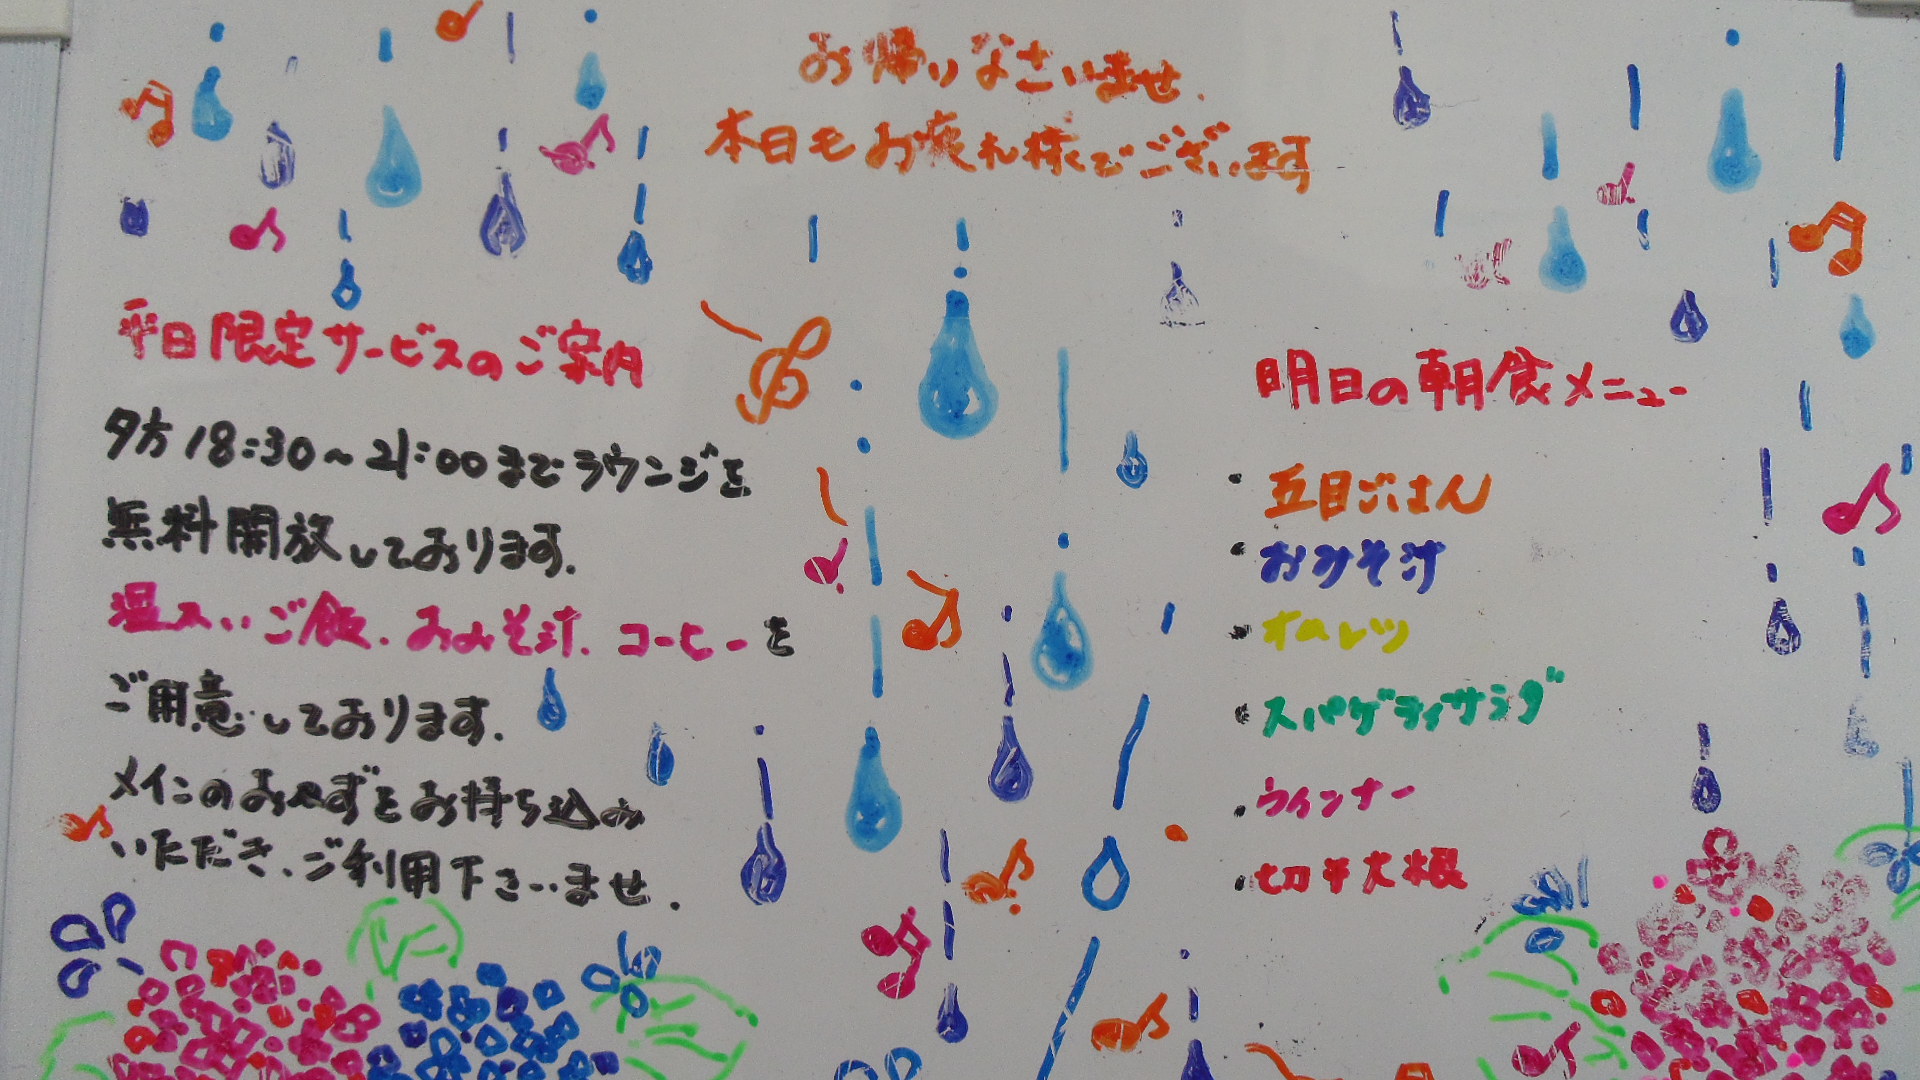 お帰りなさいませ.
本日もお疲れ様でございます
平日限定サービスのご案内
夕方18:30～21:00までラウンジを
無料開放しております.
温かいご飯.おみそ汁.コーヒーを
ご用意しております.
メインのおかずをお持ち込み
いただき、ご利用下さいませ.
明日の朝食メニュー
・五目ごはん
・おみそ汁
・オムレツ
・スパゲティサラダ
・ウインナー
・切干大根